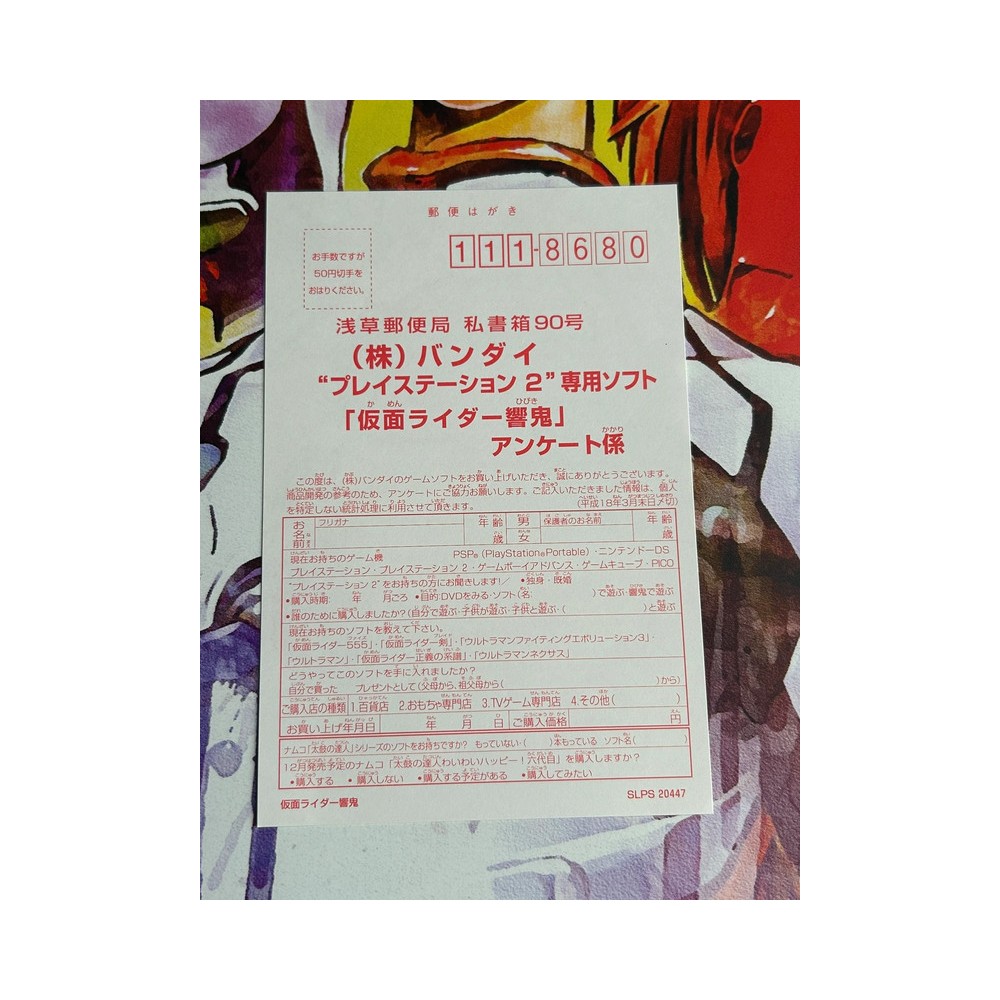 郵便はがき
111-8680
お手数ですが
50円切手を
おはりください。
浅草郵便局 私書箱90号
(株)バンダイ
“プレイステーション 2”専用ソフト
「仮面ライダー響鬼」
アンケート係
この度は、(株)バンダイのゲームソフトをお買い上げいただき、誠にありがとうございます。
商品開発の参考のため、アンケートにご協力お願いします。ご記入いただきました情報は、個人
を特定しない統計処理に利用させて頂きます。 (平成18年3月末日〆切)
お名前 フリガナ 年齢 歳 男 女 保護者のお名前 年齢 歳
現在お持ちのゲーム機 PSP®(PlayStation®Portable)・ニンテンドーDS
プレイステーション・プレイステーション 2・ゲームボーイアドバンス・ゲームキューブ・PICO
“プレイステーション 2”をお持ちの方にお聞きします!/ •独身・既婚
•購入時期: 年 月ごろ •目的:DVDをみる・ソフト(名: )で遊ぶ・響鬼で遊ぶ
•誰のために購入しましたか?(自分で遊ぶ・子供が遊ぶ・子供と遊ぶ・( )と遊ぶ
現在お持ちのソフトを教えて下さい。
「仮面ライダー555」・「仮面ライダー剣」・「ウルトラマンファイティングエボリューション3」・
「ウルトラマン」・「仮面ライダー正義の系譜」・「ウルトラマンネクサス」
どうやってこのソフトを手に入れましたか?
自分で買った プレゼントとして(父母から、祖父母から( )から)
ご購入店の種類 1.百貨店 2.おもちゃ専門店 3.TVゲーム専門店 4.その他( )
お買い上げ年月日 年 月 日 ご購入価格 円
ナムコ「太鼓の達人」シリーズのソフトをお持ちですか? もっていない・( )本もっている ソフト名( )
12月発売予定のナムコ「太鼓の達人わいわいハッピー!六代目」を購入しますか?
•購入する •購入しない •購入する予定がある •購入してみたい
仮面ライダー響鬼 SLPS 20447